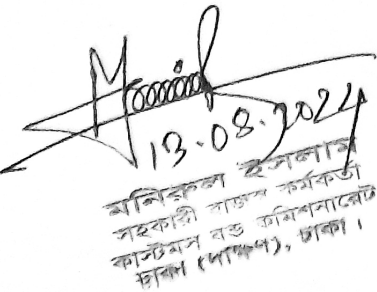 Monir
13.08.2024
মনিরুল ইসলাম
সহকারী রাজস্ব কর্মকর্তা
কাস্টমস বন্ড কমিশনারেট
ঢাকা (দক্ষিণ), ঢাকা।